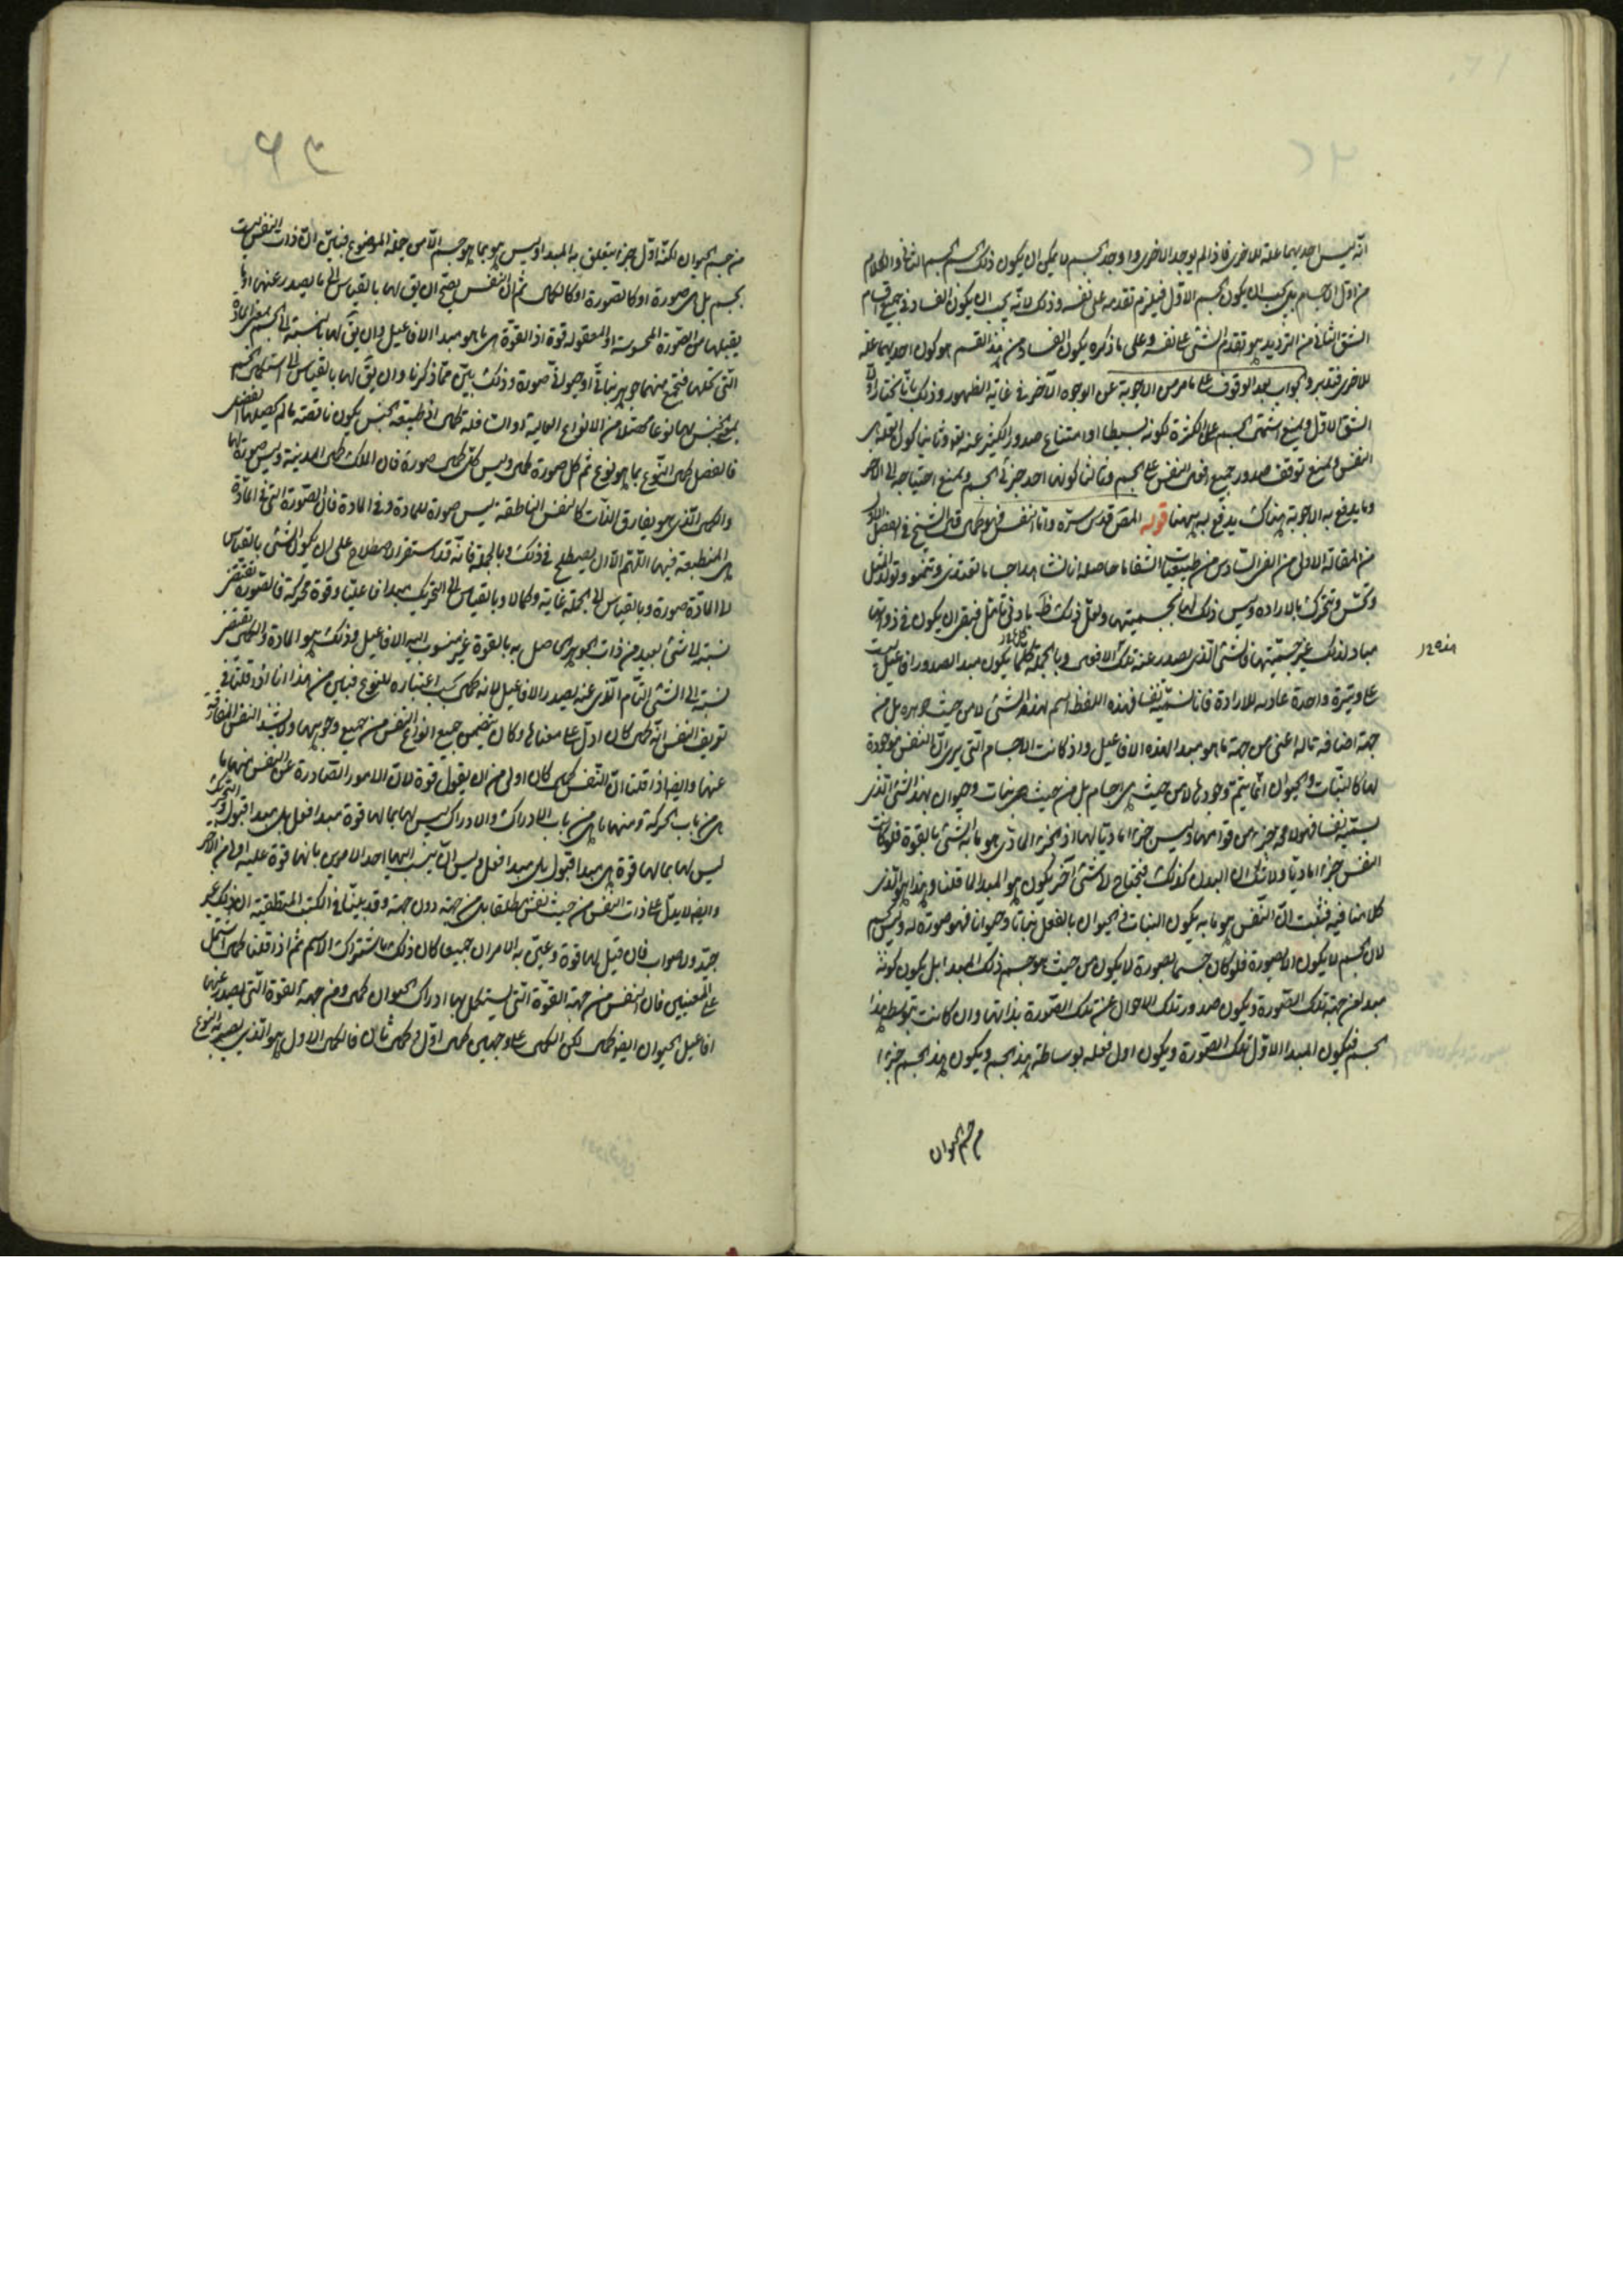 انه ليس احديهما علة للاخرى فاذا لم يوجد الاخرى و اوجد الجسم لا يمكن ان يكون ذلك الجسم الجسم الثانى والكلام
من اول الاجسام بل يجب ان يكون الجسم الاول فيلزم تقدمه على نفسه وذلك لانه يجب ان يكون الفساد فى جميع اقسام
الشق الثانى من الترديد هو تقدم الشئ على نفسه وعلى ما ذكره يكون الفساد من هذا القسم هو كون احديهما علة
للاخرى فتدبر والجواب بعد الوقوف على ما مر من الاجوبة عن الوجوه الآخر فى غاية الظهور وذلك بانا نختار اولا
الشق الاول ويمنع الجسم على الكثرة لكونه بسيطا او امتناع صدور الكثير عنه وثانيا كون العلة هى
النفس ويمنع توقف صدور جميع افعال النفس على الجسم وثالثا كونها احد جزئى الجسم ويمنع احتياجه الى الآخر
وما يدفع به الاجوبة هناك يدفع به ههنا قوله المص قدس سره واما النفس قال الشيخ فى الفصل الاول
من المقالة الاولى من الفن السادس من طبيعيات الشفا ما حاصله انا نشاهد اجساما تغتذى وتنمو وتولد المثل
وتحس وتتحرك بالارادة وليس ذلك لها لجسميتها ولعل ذلك ظ بادنى تامل فبقى ان يكون فى ذواتها
مباد لذلك غير جسميتها فالشئ الذى يصدر عنه تلك الافعال وبالجملة كلما يكون مبدا لصدور افاعيل ليست
على وتيرة واحدة عادمة للارادة فانا نسميه نفسا فهذه اللفظة اسم لهذا الشئ لا من حيث جوهره بل من
جهة اضافة ما له اعنى من جهة ما هو مبدا لهذه الافاعيل واذ كانت الاجسام التى يرى ان النفس موجودة
لها كالنبات والحيوان انما يتم وجودها لا من حيث هى اجسام بل من حيث هى نبات وحيوان بهذا الشئ الذى
يسميه نفسا فهو لا محة جزء من قوامها وليس جزءا ماديا لها اذ الجزء المادى هو ما به الشئ بالقوة فلو كانت
النفس جزءا ماديا ولا شك ان البدن كذلك فتحتاج لا شئ آخر يكون هو المبدا لما قلنا وهذا هو الذى
كلامنا فيه فثبت ان النفس هو ما به يكون النبات والحيوان بالفعل نباتا وحيوانا فهو صورة له وليس بجسم
لان الجسم لا يكون الا لصورة فلو كان جسم لصورة لا يكون من حيث هو جسم ذلك المبدا بل يكون كونه
مبدا من جهة تلك الصورة ويكون صدور تلك الاحوال عن تلك الصورة بذاتها وان كانت بتوسط هذا
الجسم فيكون المبدا الاول تلك الصورة ويكون اول فعله بوساطة هذا الجسم ويكون هذا الجسم جزءا
من جسم الحيوان
من جسم الحيوان لكنه اول جزء يتعلق به المبدا وليس هو بما هو جسم الا من جملة الموضوع فتبين ان ذات النفس ليست
بجسم بل هى صورة او كالصورة او كالكمال ثم ان النفس يصح ان يق لها بالقياس الى ما يصدر عنها او ما
يقبلها من الصورة المحسوسة او المعقولة قوة اذ القوة هى ما هو مبدا الافاعيل وان يق لها بالنسبة الى الجسم المادة
التى تحلها فتجتمع منهما جوهر نباتى او حيوانى صورة وذلك بين مما ذكرنا وان يق لها بالقياس الى استكمال الجنس
بها نوعا محصلا من الانواع العالية او السافلة كمال اذ طبيعة الجنس يكون ناقصة ما لم يحصلها الفصل
فالفصل كمال النوع بما هو نوع ثم كل صورة كمال وليس كل كمال صورة فان الملك كمال المدينة وليس صورة لها
والكمال الذى هو يفارق الذات كالنفس الناطقة ليس صورة للمادة وفى المادة فان الصورة التى فى المادة
هى المنطبعة فيها اللهم الا ان يصطلح فى ذلك وبالجملة فانه قد استقر الاصطلاح على ان يكون الشئ بالقياس
الى المادة صورة وبالقياس الى الجملة غاية وكمالا وبالقياس الى التحريك مبدا فاعليا وقوة محركة فالصورة تقتضى
نسبة الى شئ بعيد من ذات الجوهر الحاصل به بالقوة غير منسوب اليه الافاعيل وذلك هو المادة والكمال يقتضى
نسبة الى الشئ التام الذى عنه يصدر الافاعيل لانه كمال بحسب اعتباره للنوع فتبين من هذا انا اذا قلنا فى
تعريف النفس انه كمال كان ادل على معناها وكان يتضمن جميع انواع النفس من جميع وجوهها ولا يشذ النفس المفارقة
عنها وايضا اذا قلنا ان النفس كمال كان اولى من ان يقول قوة لان الامور الصادرة عن النفس منها ما
هى من باب الحركة ومنها ما هى من باب الادراك والادراك ليس لها بما لها قوة مبدا فعل بل مبدا قبول والتحريك
ليس لها بما لها قوة هى مبدا قبول بل مبدا فعل وليس ان ينسب اليها احد الامرين بانها قوة عليه اولى من الآخر
وايضا لا يدل على ذات النفس من حيث نفس مطلقا بل من جهة دون جهة وقد بينا فى الكتب المنطقية ان ذلك غير
جيد ولا صواب فان قيل لها قوة وعنى به الامران جميعا كان ذلك باشتراك الاسم ثم اذا قلنا كمال اشتمل
على المعنيين فان النفس من جهة القوة التى يستكمل بها ادراك الحيوان كمال ومن جهة القوة التى يصدر عنها
افاعيل الحيوان ايضا كمال لكن الكمال على وجهين كمال اول وكمال ثان فالكمال الاول هو الذى يصير به النوع